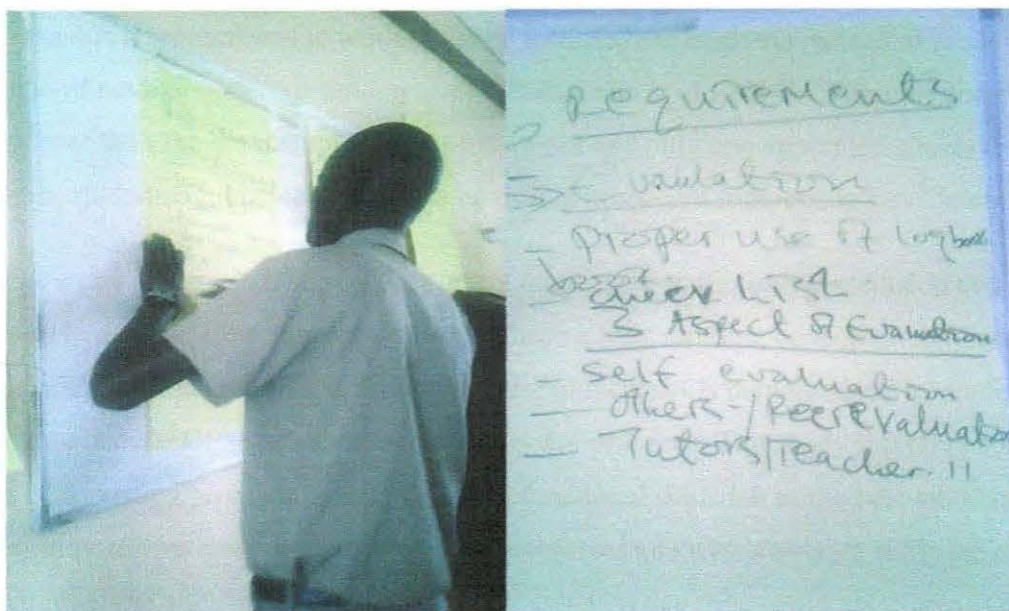 Requirements
Evaluation
- Proper use of Logbook
Check List
3 Aspect of Evaluation
- Self evaluation
- Others-/Peer Evaluation
- Tutors/Teacher 11